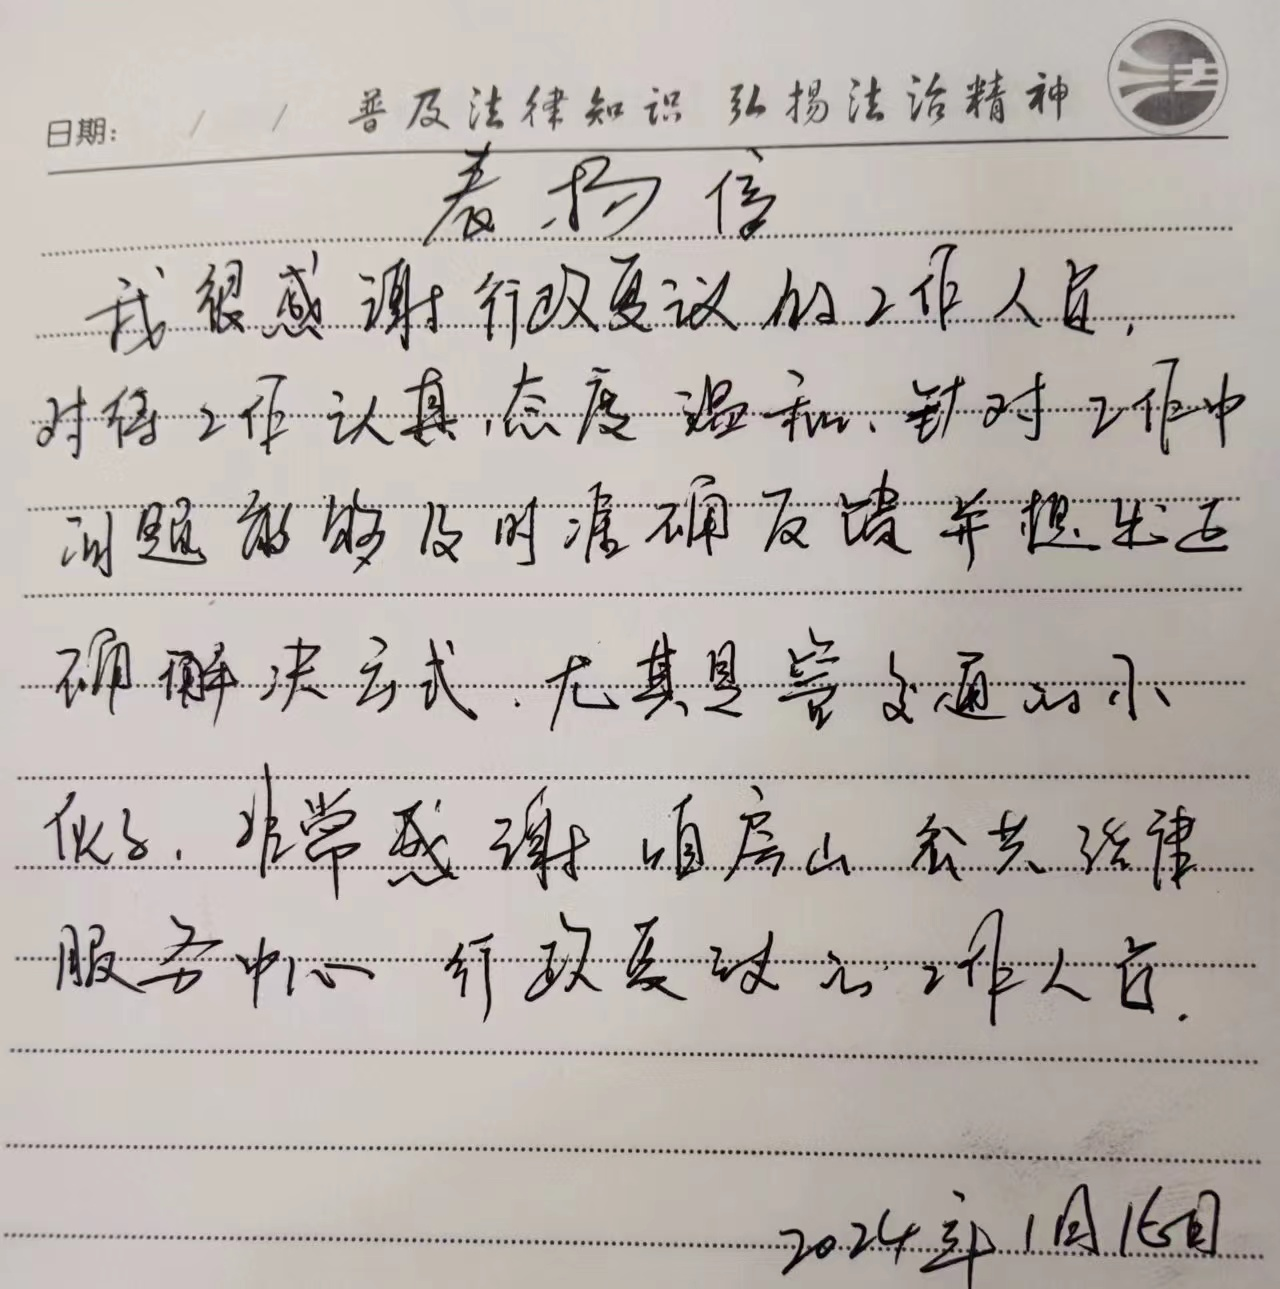 日期： / / 普及法律知识 弘扬法治精神 法
表扬信
我很感谢行政复议的工作人员，
对待工作认真，态度温和、针对工作中
问题能够及时准确反馈并想出正
确解决方式．尤其是管交通的小
伙子．非常感谢咱房山公共法律
服务中心 行政复议的工作人员．
2024年1月16日